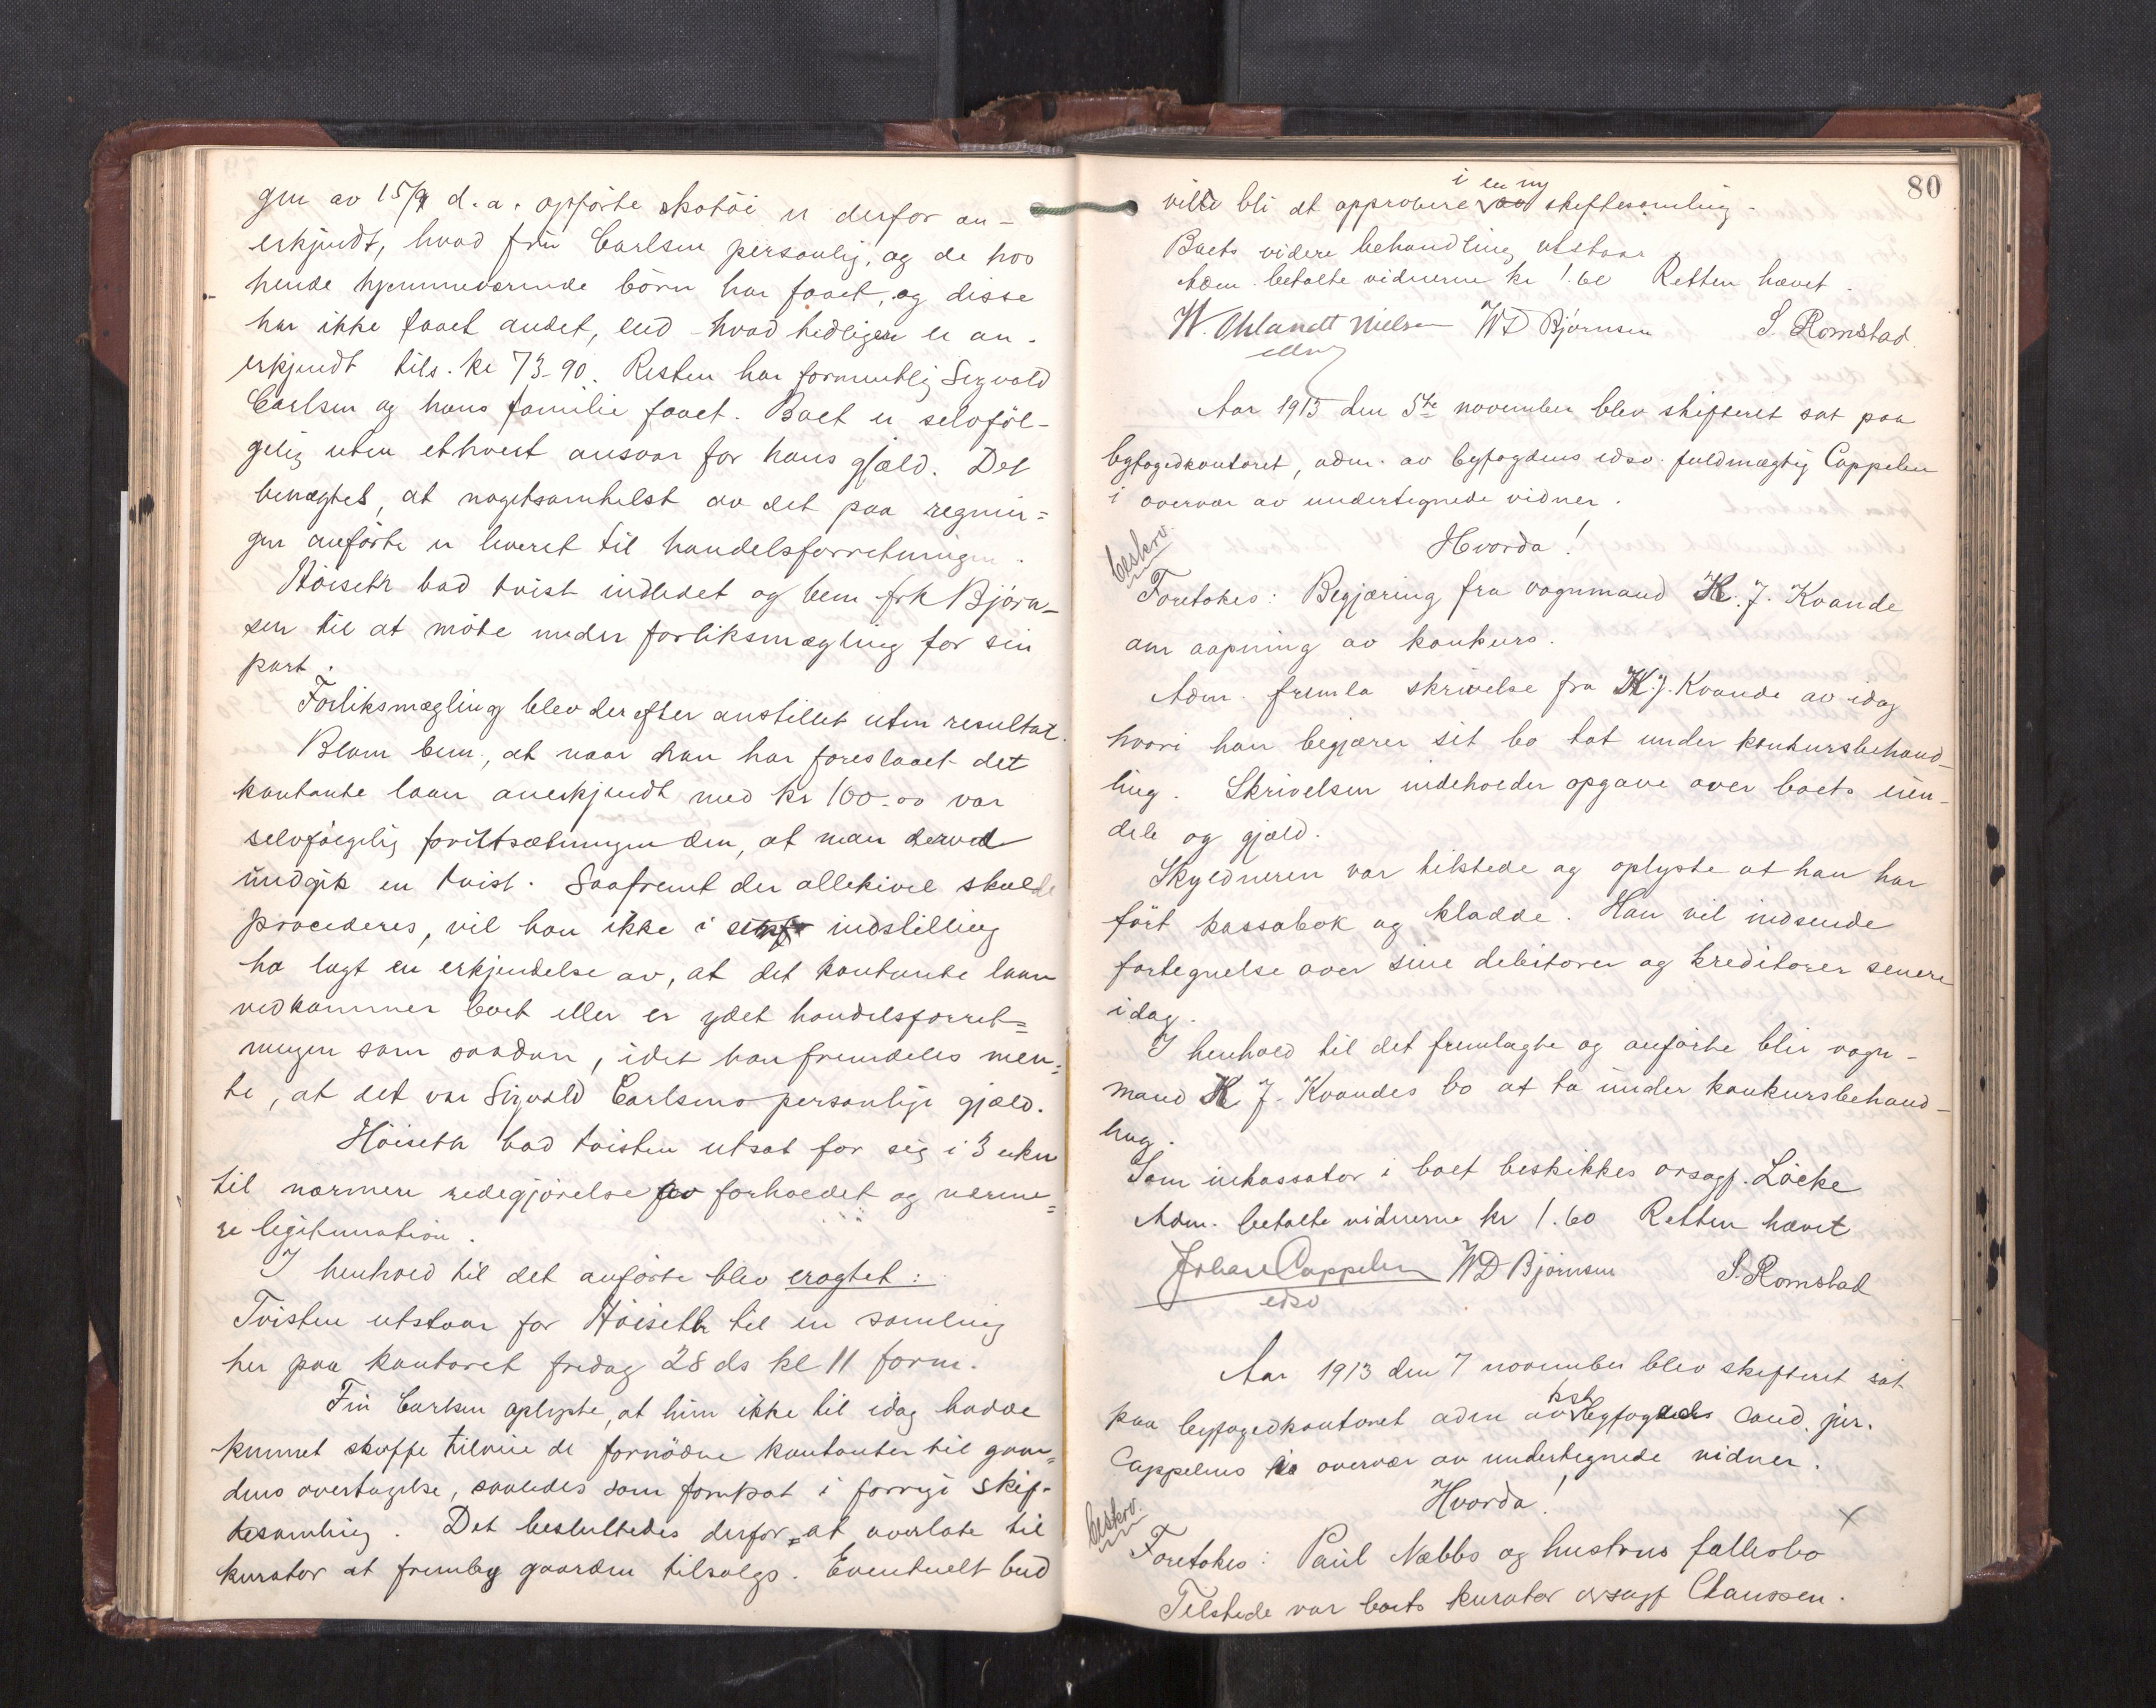 gen av 15/9 d.a. opførte skotöi er derfor an-
erkjendt, hvad frü Carlsen personlig, og de hos
hende hjemmeværende börn har faaet, og disse
har ikke faaet andet, end hvad tidligere er an-
erkjendt tils. kr 73-90. Resten har formentlig Sigvald
Carlsen og hans familie faaet. Boet er selvföl-
gelig uten ethvert ansvar for hans gjæld. Det
benægtes, at nogetsomhelst av det paa regnin-
gen anførte er leveret til handelsforretningen.
Höiseth bad tvist indledet og bem frk Björn-
sen til at möte under forliksmægling for sin
part.
Forliksmægling blev derefter anstillet uten resultat.
Blom bem., at naar han har foreslaaet det
kontante laan anerkjendt med kr 100.00 var
selvfölgelig forutsætningen den, at man derved
undgik en tvist. Saafremt der allikevel skulde
procederes, vil han ikke i indstilling
ha lagt en erkjendelse av, at det kontante laan
vedkommer boet eller er ydet handelsforret-
ningen som saadan, idet han fremdeles men-
te, at det var Sigvald Carlsens personlige gjæld.
Höiseth bad tvisten utsat for sig i 3 uker
til nærmere redegjörelse av forholdet og nærme-
re legitimation.
I henhold til det anførte blev eragtet:
Tvisten utstaar for Höiseth til en samling
her paa kontoret fredag 28 ds kl 11 form.
Frü Carlsen oplyste, at hun ikke til idag hadde
kunnet skaffe tilveie de fornödne kontanter til gaar-
dens overtagelse, saaledes som forutsat i forrige skif-
tesamling. Det besluttedes derfor at overlate til
kurator at fremby gaarden tilsalgs. Eventuelt bud
80
vilde bli at approbere i en ny skiftesamling.
Boets videre behandling utstaar.
Adm. betalte vidnerne kr 1.60 Retten hævet.
W. Uhlandt Nielsen WD Bjørnsen S. Romstad
Aar 1913 den 5te november blev skifteret sat paa
byfogedkontoret, adm. av byfogdens edsv. fuldmægtig Cappelen
i overvær av undertegnede vidner.
Hvorda!
beskrv.
Foretokes: Begjæring fra vognmand K. J. Kvande
om aapning av konkurs.
Adm. fremla skrivelse fra K. J. Kvande av idag
hvori han begjærer sit bo tat under konkursbehand-
ling. Skrivelsen indeholder opgave over boets eien-
dele og gjæld.
Skyldneren var tilstede og oplyste at han har
fört kassabok og kladde. Han vil indsende
fortegnelse over sine debitorer og kreditorer senere
idag.
I henhold til det fremlagte og anførte blir vogn-
mand K J. Kvandes bo at ta under konkursbehand-
ling.
Som inkassator i boet beskikkes orsagf. Löcke
Adm. betalte vidnerne kr 1.60 Retten hævet
Johan Cappelen WD Bjørnsen S. Romstad
edsv
Aar 1913 den 7 november blev skifteret sat
paa byfogedkontoret adm av kst byfogd cand. jur.
Cappelens i overvær av undertegnede vidner.
Hvorda!
beskrv.
Foretokes: Paul Næbbs og hustrus fællesbo
Tilstede var boets kurator orsagf Claussen.